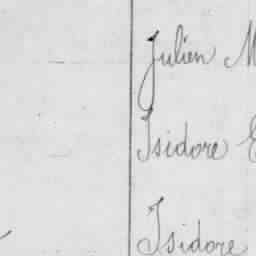 Julien M
Isidore E
Isidore